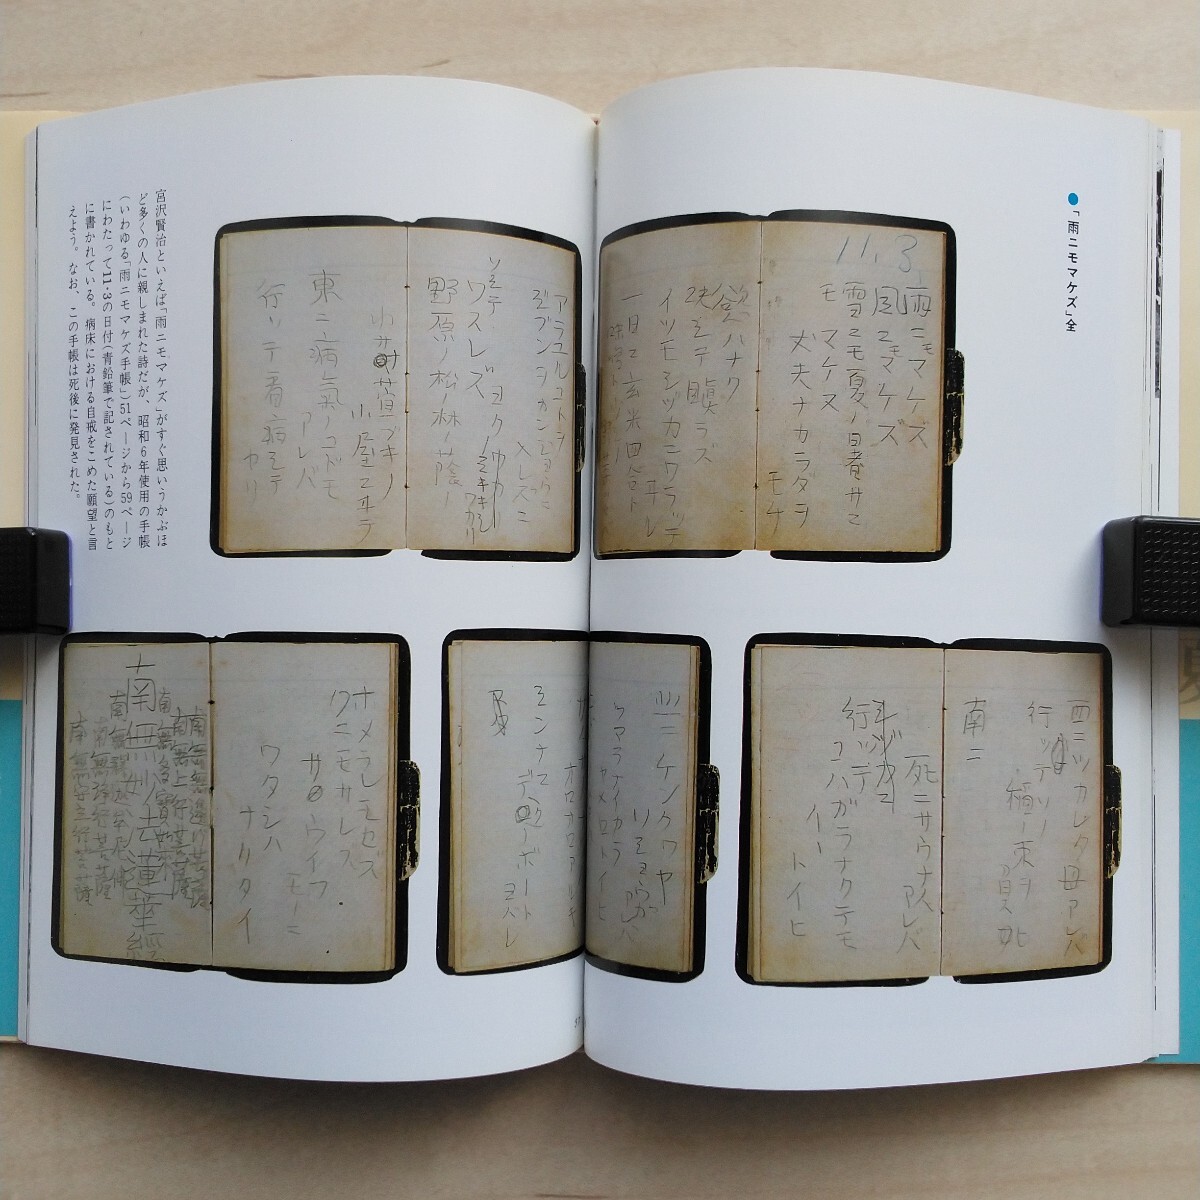 ●「雨ニモマケズ」全
11.3,
雨ニモマケズ
風ニモマケズ
雪ニモ夏ノ暑サニ
モ マケヌ
丈夫ナカラダヲ
モチ
慾ハナク
決シテ瞋ラズ
イツモシヅカニワラッテ
ヰル
一日ニ玄米四合ト
アラユルコトヲ
ジブンヲカンジョウニ
入レズニ
ヨクミキキシ
ワカリ
ソシテ
ワスレズ
野原ノ松ノ林ノ蔭ノ
小サナ萓ブキノ
小屋ニヰテ
東ニ病氣ノコドモ
アレバ
行ッテ看病シテ
ヤリ
宮沢賢治といえば「雨ニモマケズ」がすぐ思いうかぶほ
ど多くの人に親しまれた詩だが、昭和6年使用の手帳
(いわゆる「雨ニモマケズ手帳」)51ページから59ページ
にわたって11・3の日付(青鉛筆で記されている)のもと
に書かれている。病床における自戒をこめた願望と言
えよう。なお、この手帳は死後に発見された。
西ニツカレタ母アレバ
行ッテソノ
稲ノ束ヲ
負ヒ
南ニ
死ニサウナ人
アレバ
行ッテ
コハガラナクテモ
イヽ
トイヒ
北ニケンクヮヤ
ソショウガ
アレバ
ツマラナイカラ
ヤメロトイヒ
ミンナニ
デクノボート
ヨバレ
ホメラレモセズ
クニモサレズ
サウイフ
モノニ
ワタシハ
ナリタイ
南無無邊行菩薩
南無上行菩薩
南無多寶如來
南無妙法蓮華経
南無釈迦牟尼佛
南無浄行菩薩
南無安立行菩薩